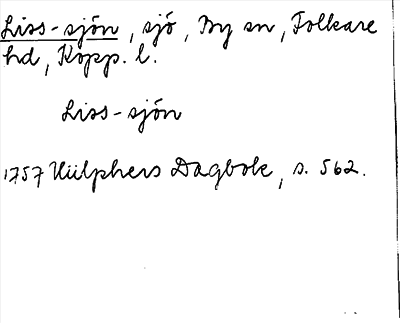 Liss-sjön, sjö, By sn, Folkare
hd, Kopp. l.
Liss-sjön
1757 Hülphers Dagbok, s. 562.